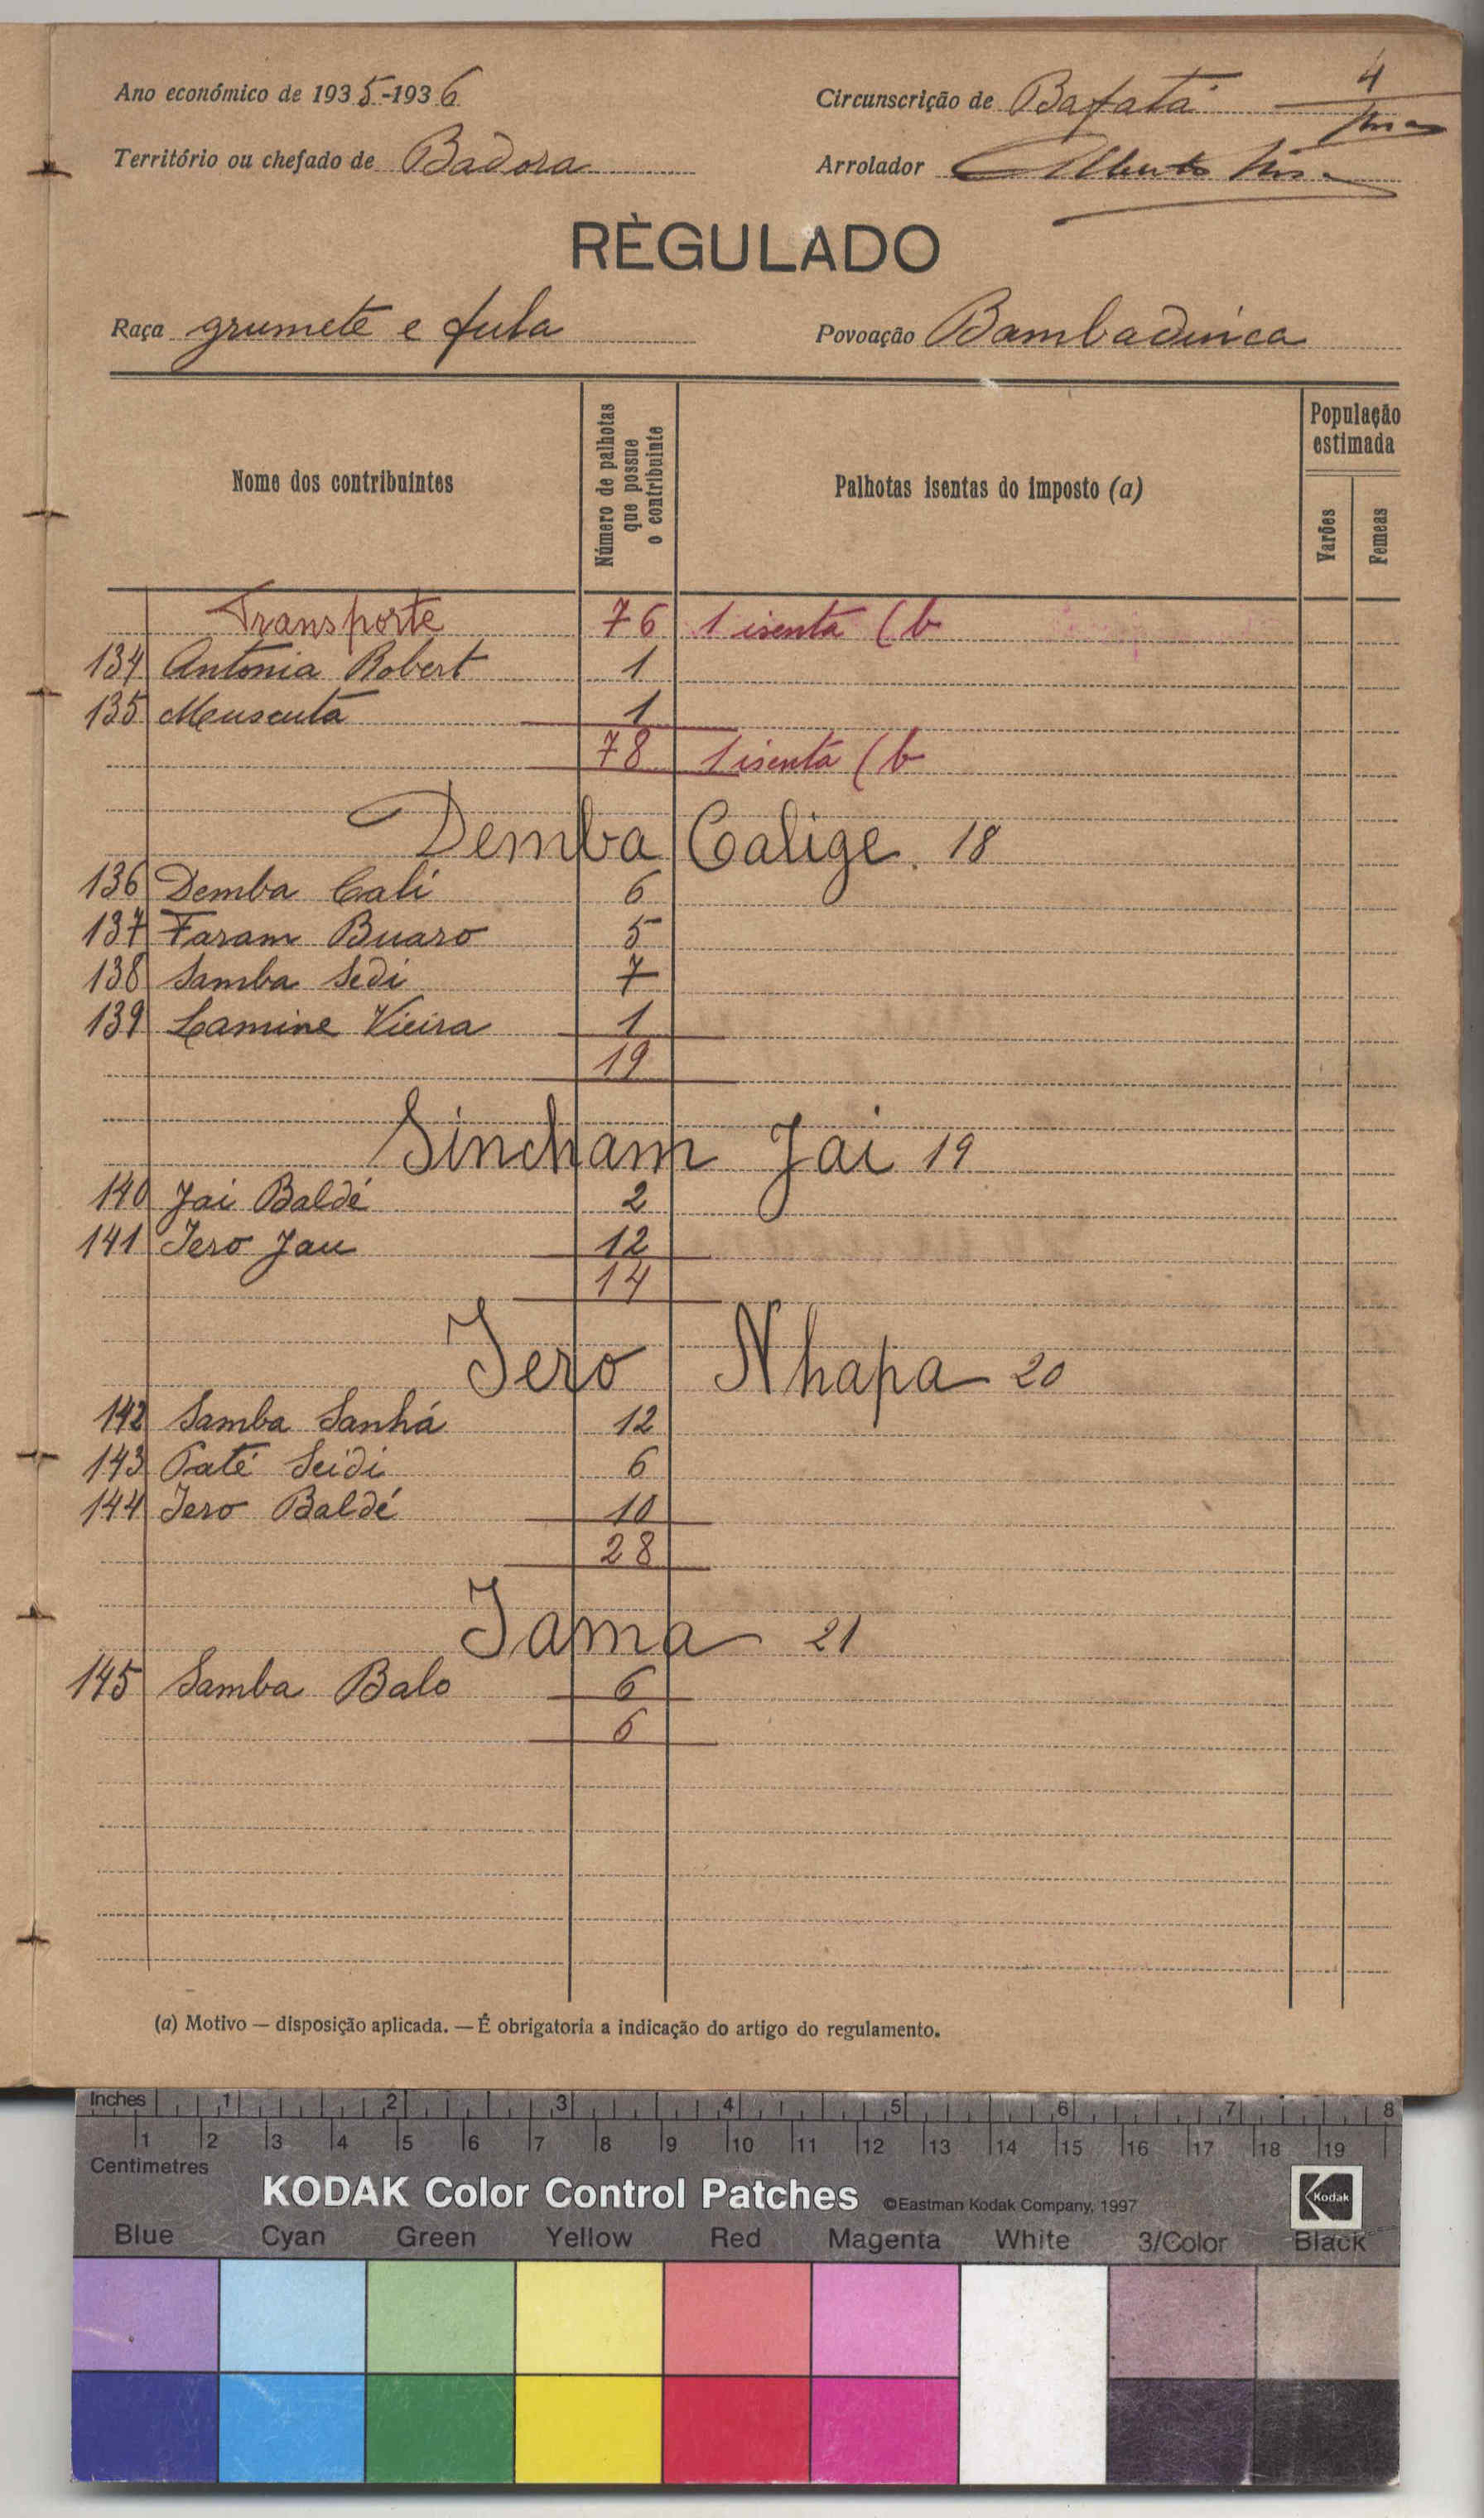 Ano económico de 1935-1936
Circunscrição de Bafatá
4
Território ou chefado de Badora
Arrolador Alberto
RÈGULADO
Raça grumete e fula
Povoação Bambadinca
Nome dos contribuintes
Número de palhotas que possue o contribuinte
Palhotas isentas do imposto (a)
População estimada
Varões
Femeas
Transporte 76 1 isenta (b
134 Antonia Robert 1
135 Meuscuta 1
78 1 isenta (b
Demba Calige. 18
136 Demba Cali 6
137 Faram Buaro 5
138 Samba Sedi 7
139 Lamine Vieira 1
19
Sincham Jai 19
140 Jai Baldé 2
141 Iero Jau 12
14
Iero Nhapa 20
142 Samba Sanhá 12
143 Paté Seidi 6
144 Iero Baldé 10
28
Iama 21
145 Samba Balo 6
6
(a) Motivo — disposição aplicada. — É obrigatoria a indicação do artigo do regulamento.
Inches 1 2 3 4 5 6 7 8
1 2 3 4 5 6 7 8 9 10 11 12 13 14 15 16 17 18 19
Centimetres
KODAK Color Control Patches ©Eastman Kodak Company, 1997 Kodak
Blue Cyan Green Yellow Red Magenta White 3/Color Black